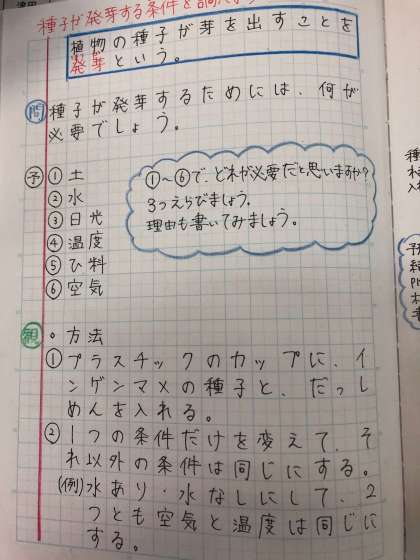 種子が発芽する条件を調べよう
植物の種子が芽を出すことを
発芽という。
問 種子が発芽するためには、何が
必要でしょう。
予 ①土
②水
③日光
④温度
⑤ひ料
⑥空気
①～⑥で、どれが必要だと思いますか?
3つえらびましょう。
理由も書いてみましょう。
観 ・方法
①プラスチックのカップに、イ
ンゲンマメの種子と、だっし
めんを入れる。
②1つの条件だけを変えて、そ
れ以外の条件は同じにする。
(例)水あり・水なしにして、2
つとも空気と温度は同じに
する。